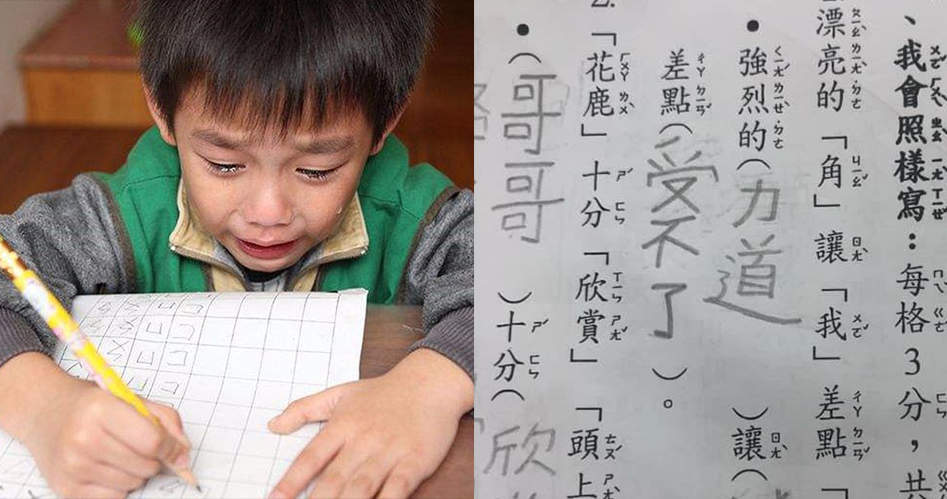 、我會照樣寫：每格3分，共
漂亮的「角」讓「我」差點「
•強烈的（力道）讓（
差點（受不了）。
「花鹿」十分「欣賞」「頭上
•（哥哥）十分（欣